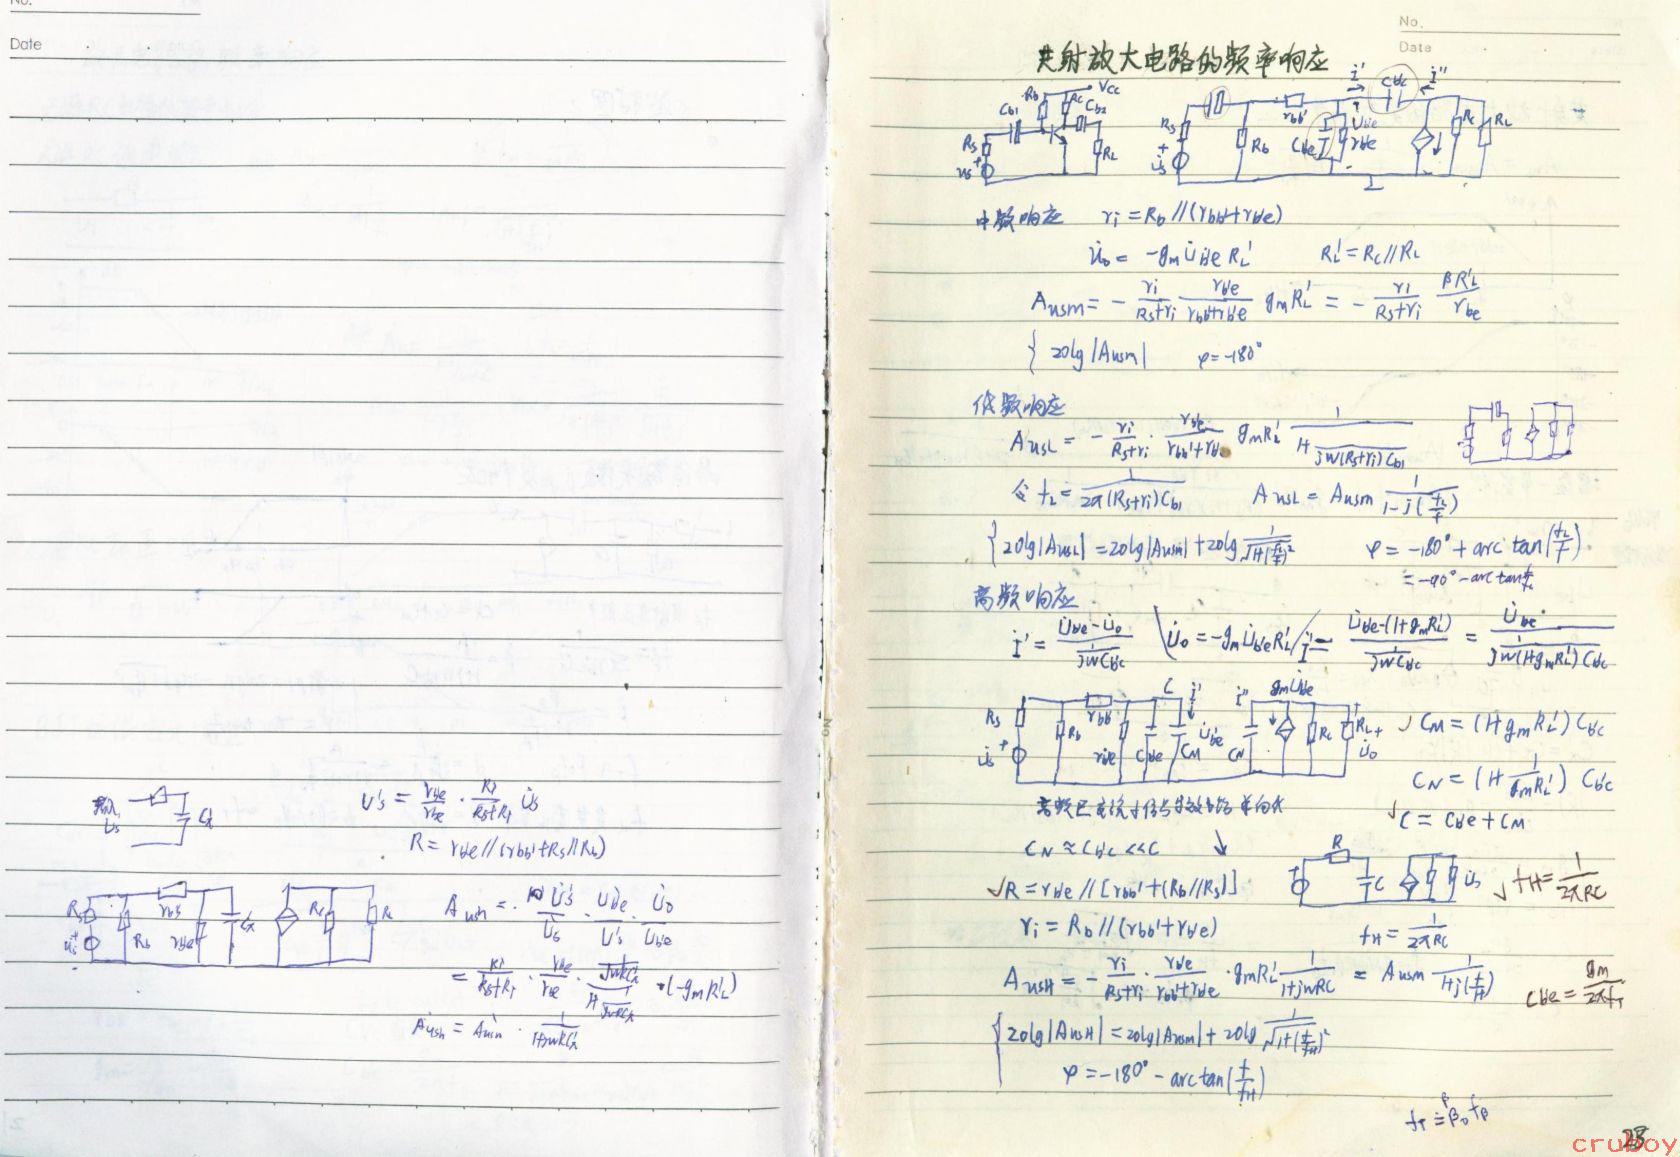 No.
Date
U's = rb'e/rbe · Ri/(Rs+Ri) U̇s
R = rb'e // (rbb'+Rs//Rb)
Cx
Us
Rs
rbb'
Rb
rb'e
Rc
U̇s
Ȧush = U̇'s/U̇s · U̇b'e/U̇'s · U̇o/U̇b'e
= Ri/(Rs+Ri) · rb'e/rbe · (1/jωRCx)/(1+1/jωRCx) · (-gmR'L)
Ȧush = Ȧusm · 1/(1+jωRCx)
No.
Date
共射放大电路的频率响应
Rb
Rc
Vcc
Cb1
Cb2
Rs
us
RL
İ'
Cb'c
İ''
Rs
rbb'
Rb
Cb'e
U̇b'e
rb'e
Rc
RL
U̇s
中频响应 ri = Rb // (rbb'+rb'e)
U̇o = -gm U̇b'e R'L R'L = Rc // RL
Ausm = - ri/(Rs+ri) rb'e/(rbb'+rb'e) gmR'L = - ri/(Rs+ri) βR'L/rbe
{ 20lg|Ausm| φ=-180°
低频响应
AusL = - ri/(Rs+ri) · rb'e/(rbb'+rb'e) gmR'L 1/(1+1/(jω(Rs+ri)Cb1))
令 fL = 1/(2π(Rs+ri)Cb1) AusL = Ausm 1/(1-j(fL/f))
{ 20lg|AusL| = 20lg|Ausm| + 20lg 1/√(1+(fL/f)²) φ = -180° + arctan(fL/f)
= -90° - arctan f/fL
高频响应
İ' = (U̇b'e-U̇o)/(1/jωCb'c) U̇o = -gmU̇b'eR'L İ' = U̇b'e(1+gmR'L)/(1/jωCb'c) = U̇b'e/(1/jω(1+gmR'L)Cb'c)
Rs
rbb'
C
İ'
İ''
gmU̇b'e
Rb
rb'e
Cb'e
CM
U̇b'e
CN
Rc
RL
U̇s
U̇o
√ CM = (1+gmR'L) Cb'c
CN = (1+1/(gmR'L)) Cb'c
√ C = Cb'e + CM
CN ≈ Cb'c << C
√ R = rb'e // [rbb' + (Rb//Rs)]
R
C
U̇s
√ fH = 1/(2πRC)
ri = Rb // (rbb'+rb'e) fH = 1/(2πRC)
AusH = - ri/(Rs+ri) · rb'e/(rbb'+rb'e) · gmR'L 1/(1+jωRC) = Ausm 1/(1+j(f/fH))
Cb'e = gm/(2πfT)
{ 20lg|AusH| = 20lg|Ausm| + 20lg 1/√(1+(f/fH)²)
φ = -180° - arctan(f/fH)
fT = β0 fβ
cruboy